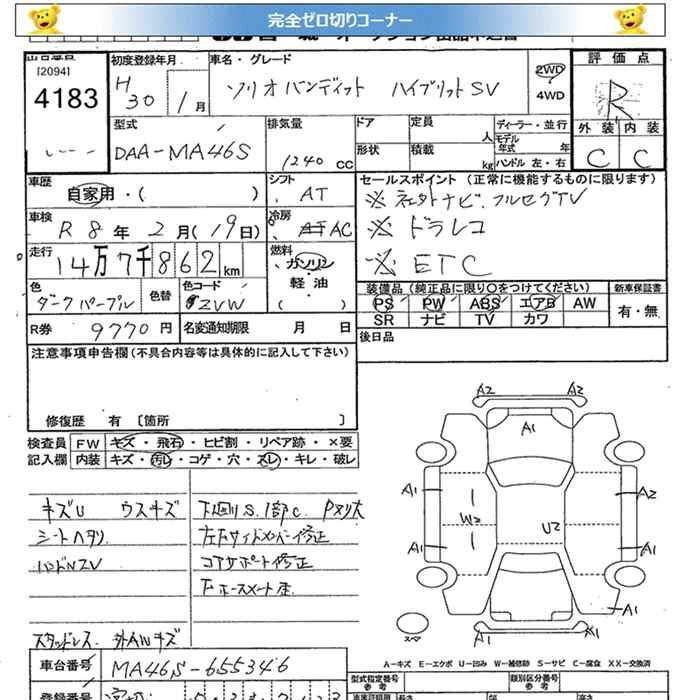 完全ゼロ切りコーナー
出品番号
[2094]
4183
初度登録年月
H 30 1月
車名・グレード
ソリオバンディット ハイブリットSV
2WD
4WD
評価点
R
外装 内装
C C
型式
DAA-MA46S
排気量
1240 cc
ドア
定員 人
ディーラー・並行
モデル年式 年
形状
積載 kg
ハンドル 左・右
車歴
自家用・( )
シフト
AT
セールスポイント (正常に機能するものに限ります)
※社外ナビ.フルセグTV
※ドラレコ
※ETC
車検
R8年2月(19日)
冷房
AC
走行
14万7千862km
燃料
ガソリン・軽油
( )
色
ダークパープル
色替
色コード
ZVW
装備品 (純正品に限り○をつけてください)
PS PW ABS エアB AW
SR ナビ TV カワ
新車保証書
有・無
R券 9770円
名変通知期限 月 日
後日品
注意事項申告欄(不具合内容等は具体的に記入して下さい)
修復歴 有 〔箇所 〕
検査員
記入欄
FW キズ・飛石・ヒビ割・リペア跡・×要
内装 キズ・汚レ・コゲ・穴・スレ・キレ・破レ
キズU ウスキズ
シートヘタリ
ハンドルスレ
スタッドレス 外AWキズ
下廻りS.1部C.
左右サイドメンバー修正
コアサポート修正
A2 A2
A1
A1 A2
W2
U2
A1 A1
A1
A1 A1
スペア
A-キズ E-エクボ U-凹み W-補修跡 S-サビ C-腐食 XX-交換済
車台番号
MA46S-655346
型式指定番号
参考
類別区分番号
参考
登録番号
長さ